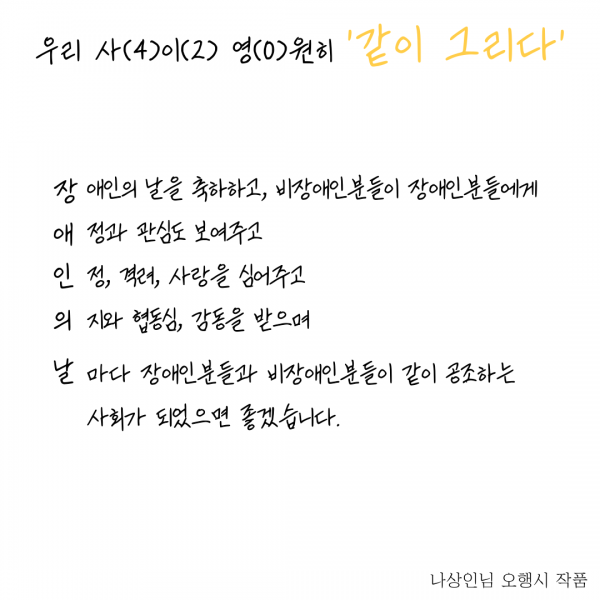 우리 사(4)이(2) 영(0)원히 '같이 그리다'
장 애인의 날을 축하하고, 비장애인분들이 장애인분들에게
애 정과 관심도 보여주고
인 정, 격려, 사랑을 심어주고
의 지와 협동심, 감동을 받으며
날 마다 장애인분들과 비장애인분들이 같이 공조하는
사회가 되었으면 좋겠습니다.
나상인님 오행시 작품